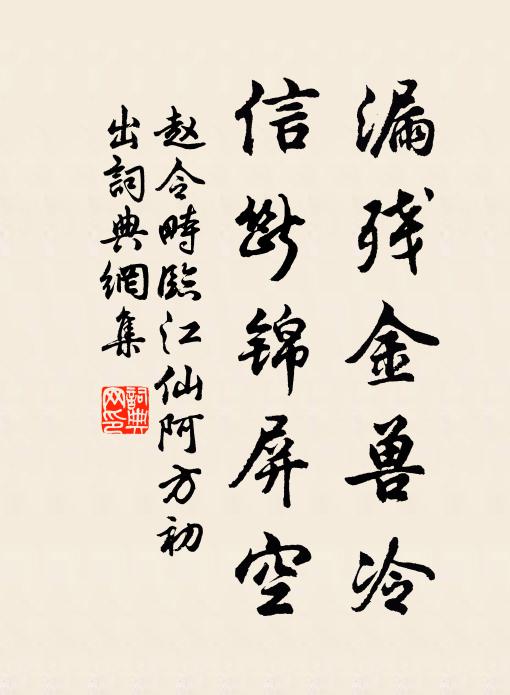 漏残金兽冷
信断锦屏空
赵令畤臨江仙阿方初
出詞典網集
詞典網印